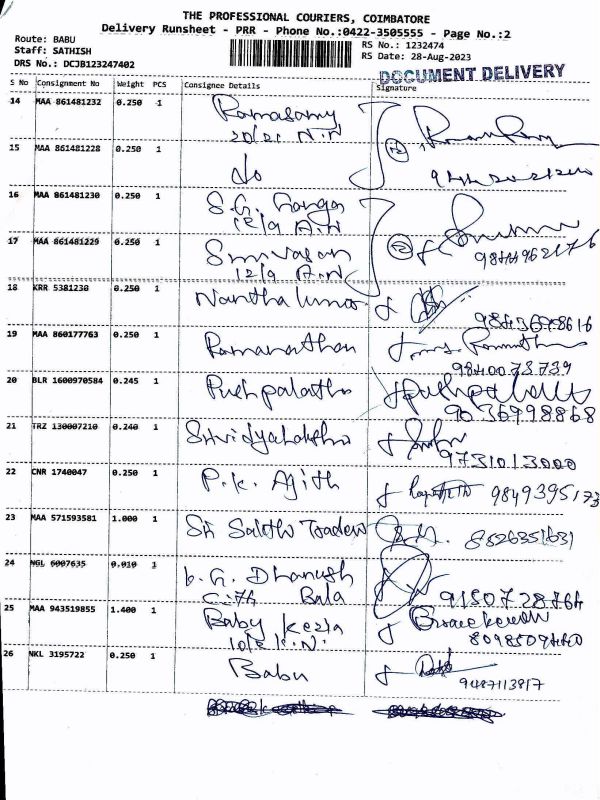 THE PROFESSIONAL COURIERS, COIMBATORE
Delivery Runsheet - PRR - Phone No.:0422-3505555 - Page No.:2
Route: BABU
Staff: SATHISH
DRS No.: DCJB123247402
RS No.: 1232474
RS Date: 28-Aug-2023
DOCUMENT DELIVERY
S No Consignment No Weight PCS Consignee Details Signature
14 MAA 861481232 0.250 1 Ramasamy
20/21 N.N
15 MAA 861481228 0.250 1 do
16 MAA 861481230 0.250 1 S.G. Ganga
12/9 A.N
17 MAA 861481229 0.250 1 Srinivasan
12/9 A.N
18 KRR 5381230 0.250 1 Nantha kumar
19 MAA 860177763 0.250 1 Ramanathan
9840073739
20 BLR 1600970584 0.245 1 Pushpalatha Pushpalatha
9036998868
21 TRZ 130007210 0.240 1 Srividyalakshi
9731013000
22 CNR 1740047 0.250 1 P.K. Ajith 9849395173
23 MAA 571593581 1.000 1 Sri Sakthi Traders 8526351631
24 NGL 6007635 0.010 1 b.G. Dhanush
Bala
9150728764
25 MAA 943519855 1.400 1 Baby Kezia
8098509440
26 NKL 3195722 0.250 1 Babu
9487113817